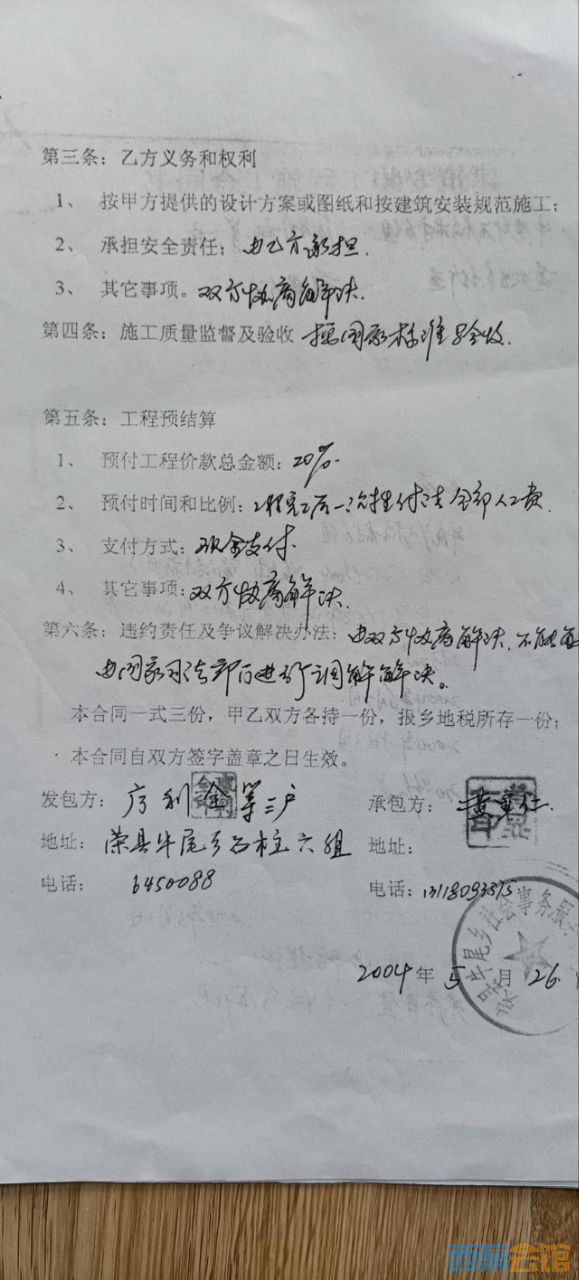 第三条：乙方义务和权利
1、 按甲方提供的设计方案或图纸和按建筑安装规范施工；
2、 承担安全责任：由乙方承担.
3、 其它事项。双方协商解决.
第四条：施工质量监督及验收 按国家标准验收.
第五条：工程预结算
1、 预付工程价款总金额：20%.
2、 预付时间和比例：工程完工后一次性付清全部人工费.
3、 支付方式：现金支付.
4、 其它事项：双方协商解决.
第六条：违约责任及争议解决办法：由双方协商解决.不能
由国家司法部门进行调解解决。
本合同一式三份，甲乙双方各持一份，报乡地税所存一份；
本合同自双方签字盖章之日生效。
发包方： 利金等三户 承包方：
地址：荣县牛尾乡石柱六组 地址：
电话： 6450088 电话：
牛尾乡社会事务服
2004年5月26
西祠会馆